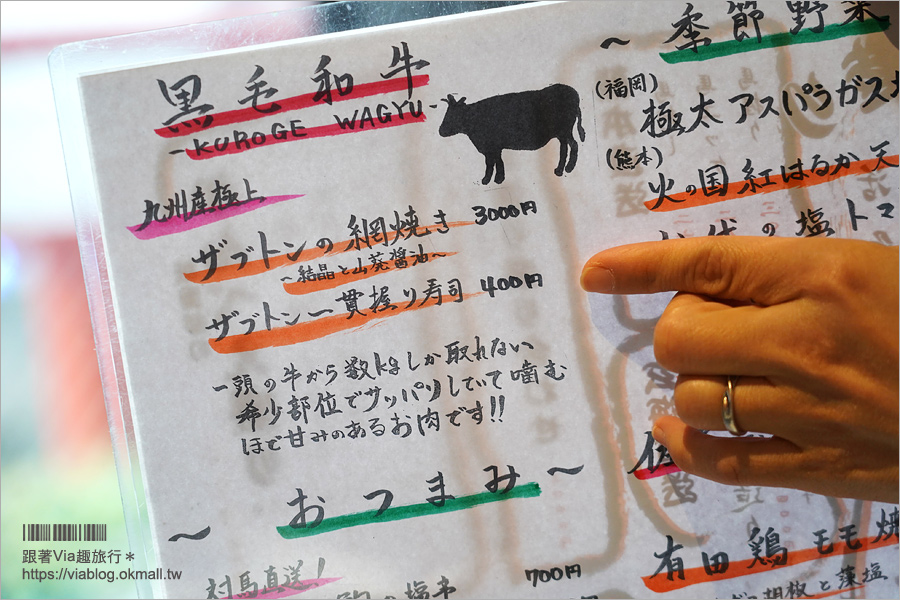 黒毛和牛
-KUROGE WAGYU-
九州産極上
ザブトンの網焼き 3000円
~結晶と山葵醤油~
ザブトン一貫握り寿司 400円
一頭の牛から数kgしか取れない
希少部位でサッパリしていて噛む
ほど甘みのあるお肉です!!
~おつまみ~
対馬直送!
の塩辛 700円
~季節野菜
(福岡)
極太アスパラガス
(熊本)
火の国紅はるか天
の塩トマ
有田鶏モモ焼
胡椒と藻塩
跟著Via趣旅行*
https://viablog.okmall.tw